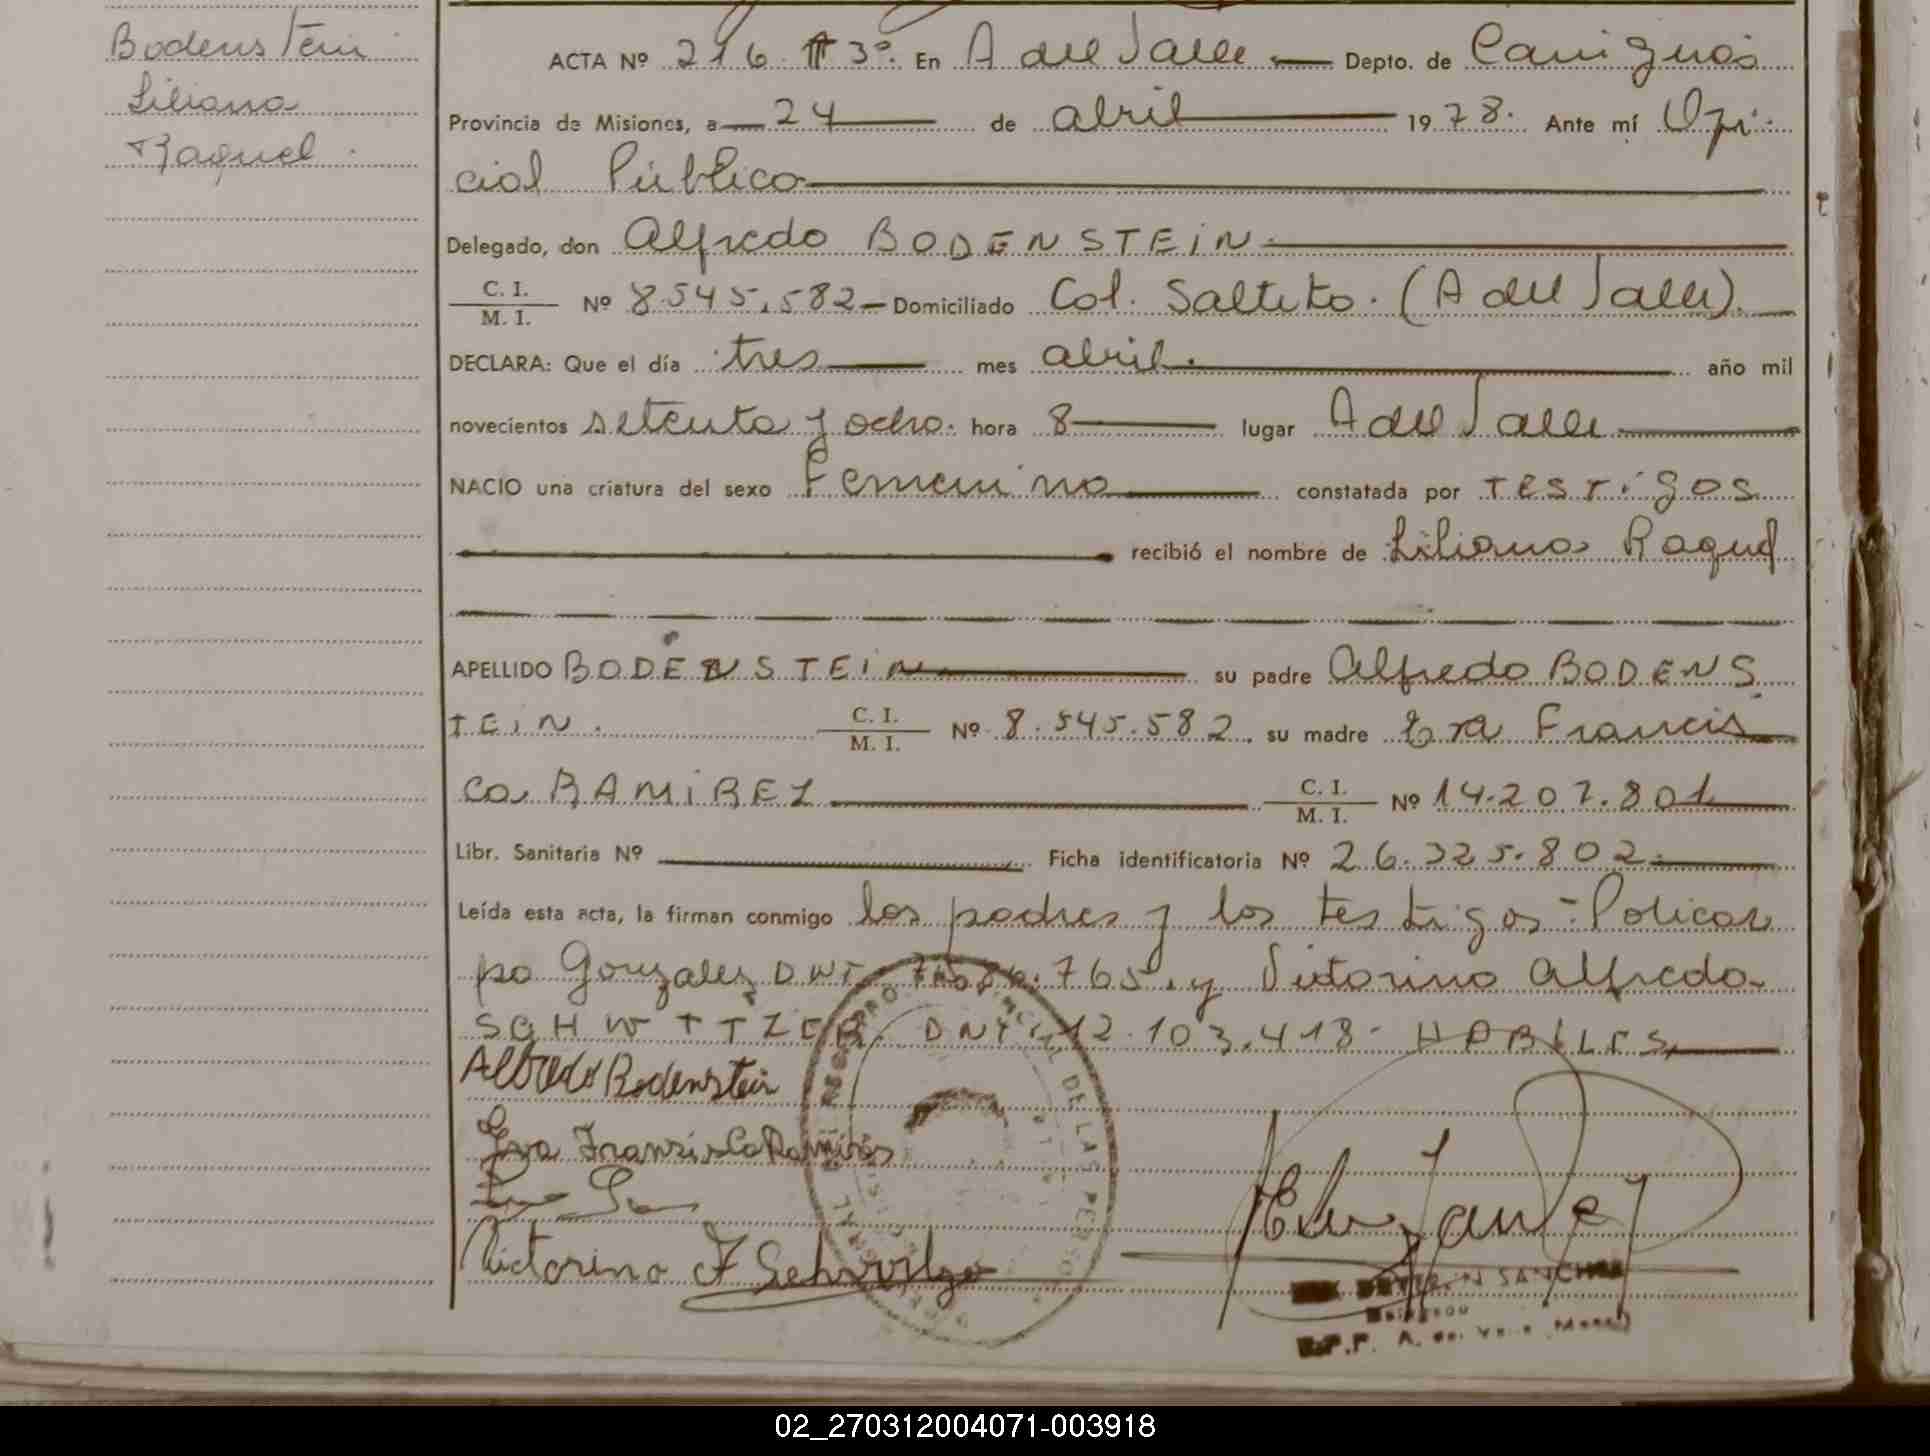 Bodenstein
Liliana
Raquel
ACTA Nº 216 Tº 3º. En A del Valle Depto. de Cainguás
Provincia de Misiones, a 24 de abril 1978. Ante mí Ofi-
cial Público
Delegado, don Alfredo BODENSTEIN.
C. I. / M. I. Nº 8.545.582 Domiciliado Col. Saltito. (A del Valle).
DECLARA: Que el día tres mes abril. año mil
novecientos setenta y ocho. hora 8 lugar A del Valle
NACIO una criatura del sexo Femenino constatada por Testigos
recibió el nombre de Liliana Raquel
APELLIDO BODENSTEIN su padre Alfredo BODENS
TEIN. C. I. / M. I. Nº 8.545.582. su madre Eva Francis
ca RAMIREZ C. I. / M. I. Nº 14.207.801
Libr. Sanitaria Nº Ficha identificatoria Nº 26.325.802.
Leída esta acta, la firman conmigo los padres y los testigos: Policar
po Gonzalez DNI. 765. y Victorino Alfredo
SCHWITTZER DNI. 12.103.418- HABILES
Alfredo Bodenstein
Eva Fransisca Ramires
Victorino
DE LAS PERSONAS
SANCHEZ
02_270312004071-003918